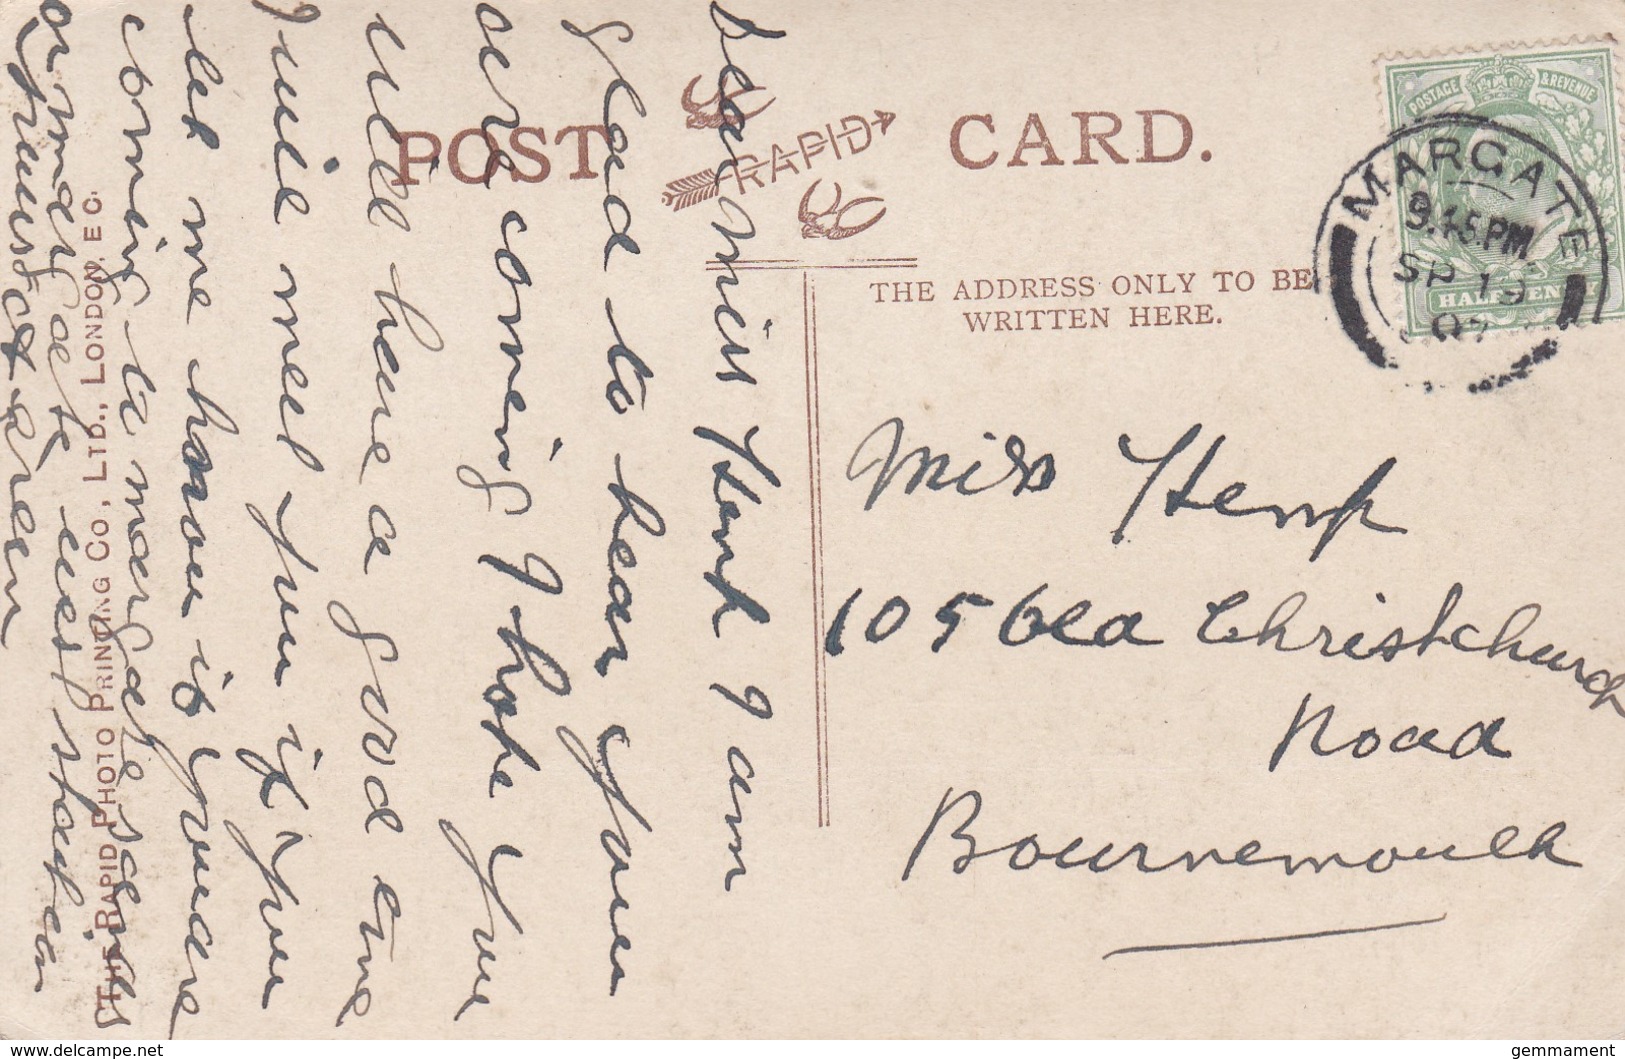 POST CARD.
RAPID
THE ADDRESS ONLY TO BE
WRITTEN HERE.
POSTAGE & REVENUE
HALFPENNY
MARGATE
9.45PM
SP 19
07
Miss Hemp
105 Old Christchurch
Road
Bournemouth
Dear Miss Hemp I am
glad to hear you
are coming I hope you
will have a good one
I will meet you if you
let me know if you are
coming to margate sands
or margate west station
THE RAPID PHOTO PRINTING CO., LTD., LONDON, E.C.
delcampe.net
gemmament